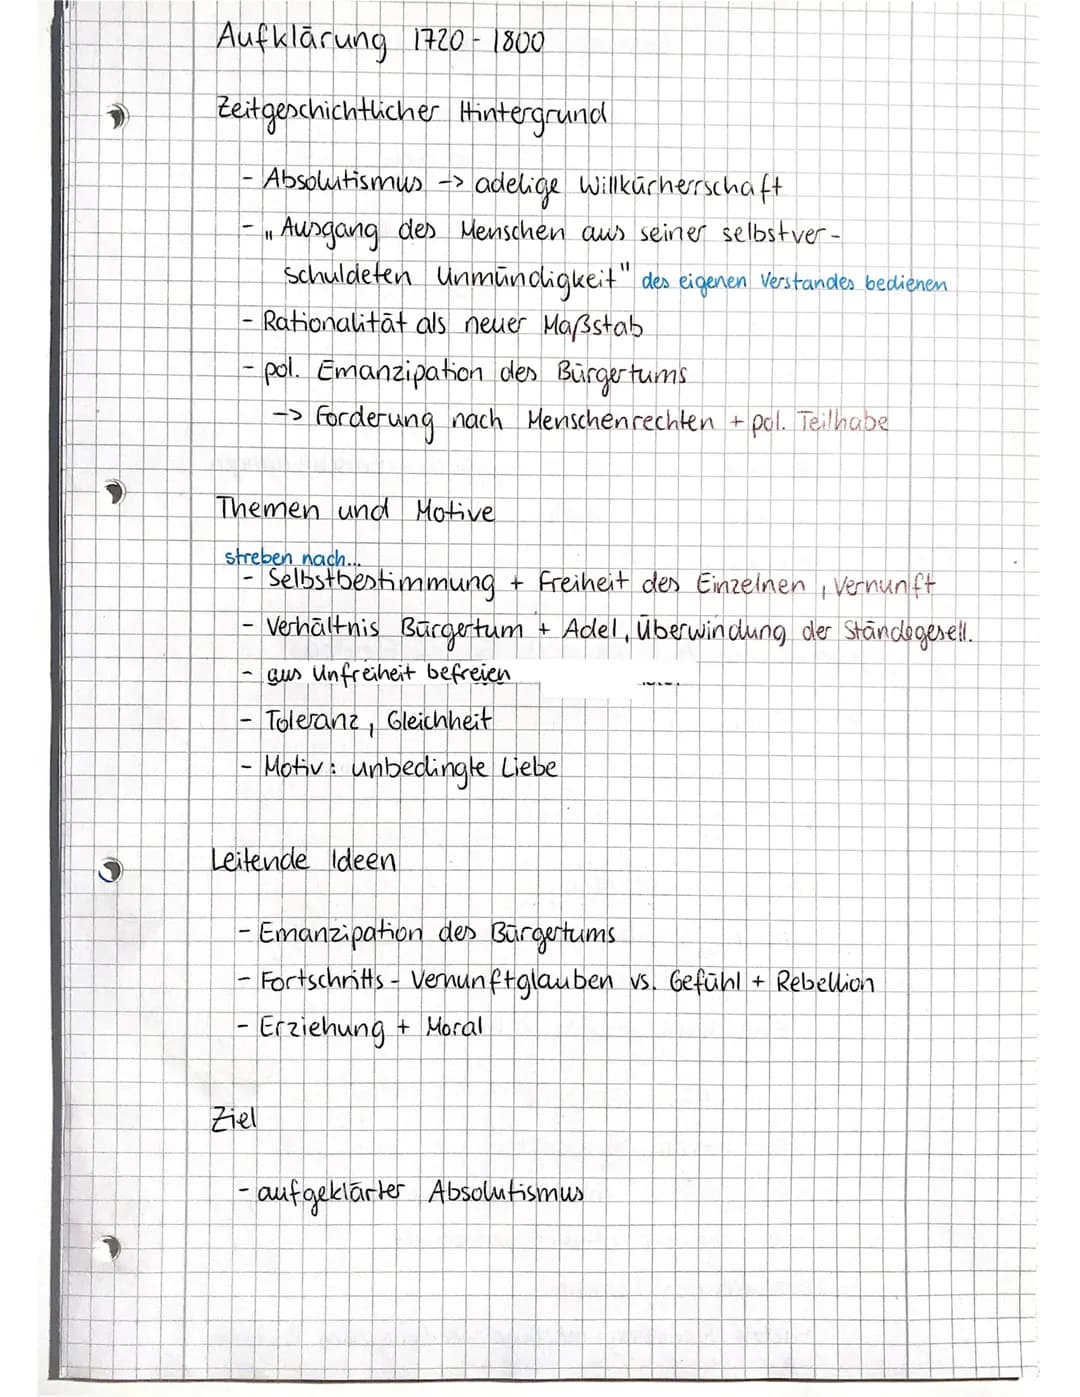 Aufklärung 1720 - 1800
Zeitgeschichtlicher Hintergrund
- Absolutismus -> adelige Willkürherrschaft
- „Ausgang des Menschen aus seiner selbstver-
schuldeten Unmündigkeit" des eigenen Verstandes bedienen
- Rationalität als neuer Maßstab
- pol. Emanzipation des Bürgertums
-> Forderung nach Menschenrechten + pol. Teilhabe
Themen und Motive
streben nach...
- Selbstbestimmung + Freiheit des Einzelnen, Vernunft
- Verhältnis Bürgertum + Adel, Überwindung der Ständegesell.
- aus Unfreiheit befreien
- Toleranz, Gleichheit
- Motiv: unbedingte Liebe
Leitende Ideen
- Emanzipation des Bürgertums
- Fortschritts - Vernunftglauben vs. Gefühl + Rebellion
- Erziehung + Moral
Ziel
- aufgeklärter Absolutismus